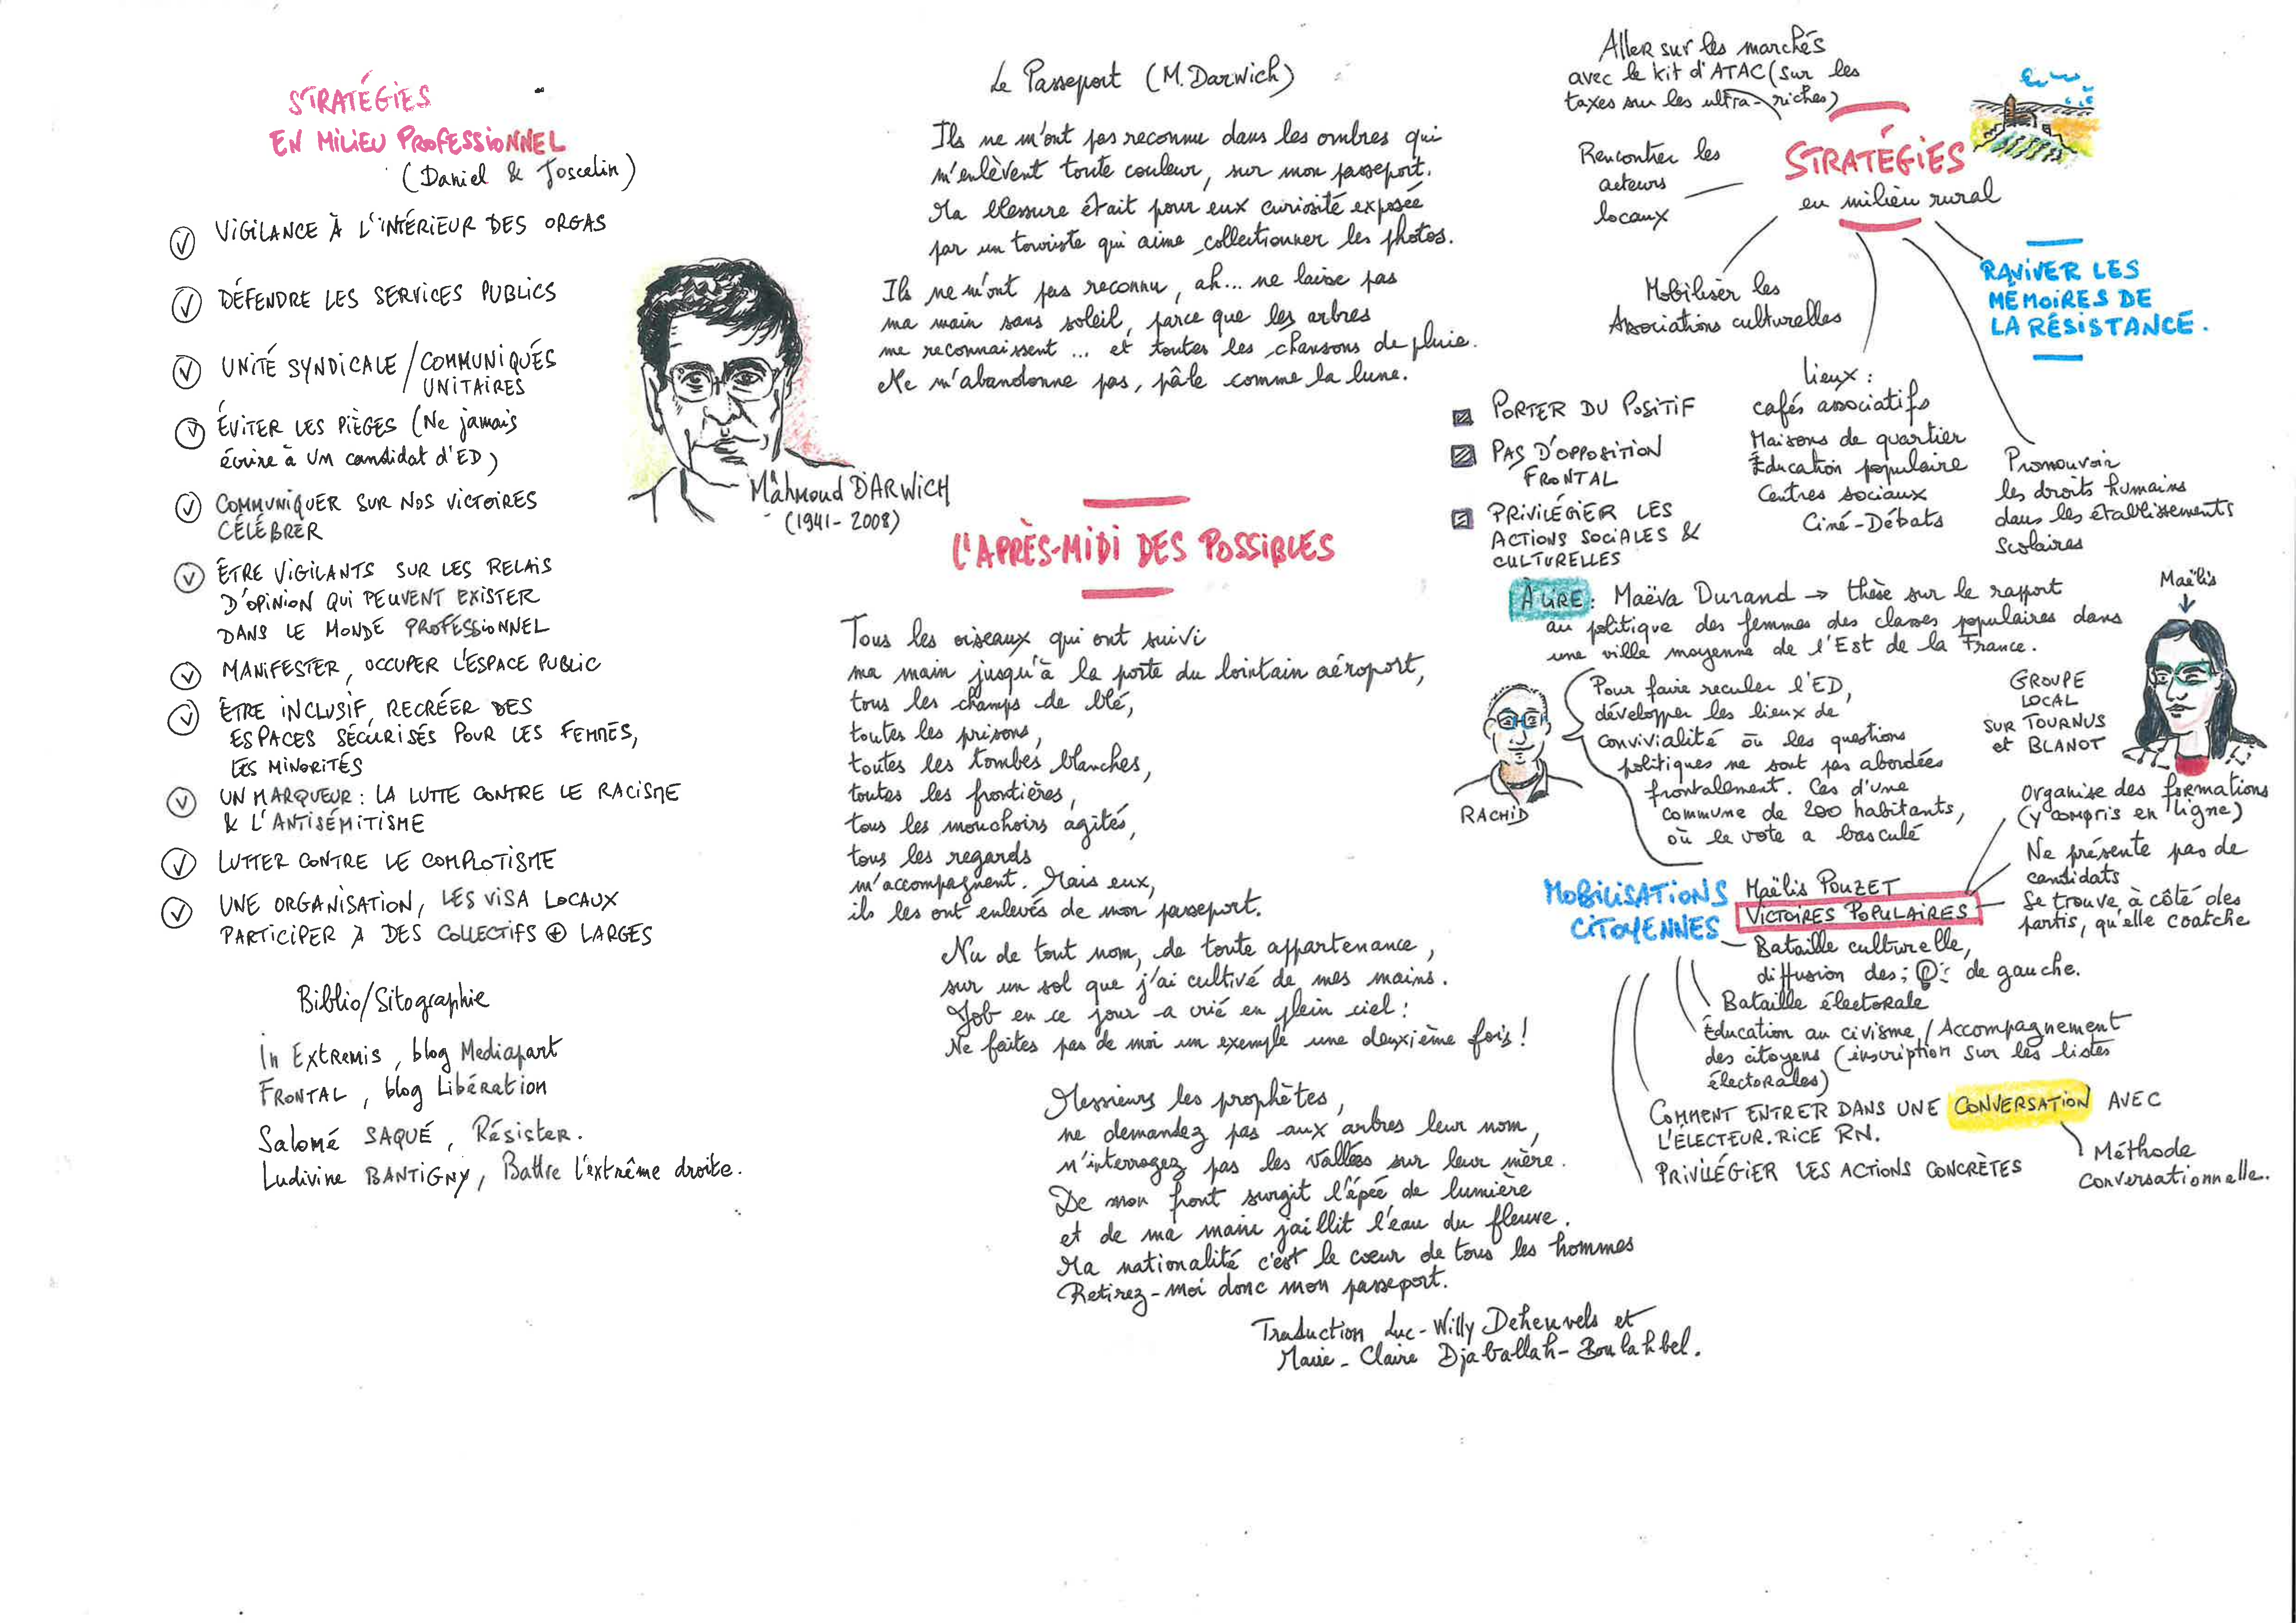 STRATÉGIES
EN MILIEU PROFESSIONNEL
(Daniel & Joscelin)
VIGILANCE À L'INTÉRIEUR DES ORGAS
DÉFENDRE LES SERVICES PUBLICS
UNITÉ SYNDICALE / COMMUNIQUÉS
UNITAIRES
ÉVITER LES PIÈGES (Ne jamais
écrire à un candidat d'ED)
COMMUNIQUER SUR NOS VICTOIRES
CÉLÉBRER
ÊTRE VIGILANTS SUR LES RELAIS
D'OPINION QUI PEUVENT EXISTER
DANS LE MONDE PROFESSIONNEL
MANIFESTER, OCCUPER L'ESPACE PUBLIC
ÊTRE INCLUSIF, RECRÉER DES
ESPACES SÉCURISÉS POUR LES FEMMES,
LES MINORITÉS
UN MARQUEUR : LA LUTTE CONTRE LE RACISME
& L'ANTISÉMITISME
LUTTER CONTRE LE COMPLOTISME
UNE ORGANISATION, LES VISA LOCAUX
PARTICIPER À DES COLLECTIFS ⊕ LARGES
Biblio/Sitographie
In Extremis, blog Mediapart
FRONTAL, blog Libération
Salomé SAQUÉ, Résister.
Ludivine BANTIGNY, Battre l'extrême droite.
Mâhmoud DARWICH
(1941-2008)
Le Passeport (M. Darwich)
Ils ne m'ont pas reconnu dans les ombres qui
m'enlèvent toute couleur, sur mon passeport.
Ma blessure était pour eux curiosité exposée
par un touriste qui aime collectionner les photos.
Ils ne m'ont pas reconnu, ah... ne laisse pas
ma main sans soleil, parce que les arbres
me reconnaissent... et toutes les chansons de pluie.
Ne m'abandonne pas, pâle comme la lune.
L'APRÈS-MIDI DES POSSIBLES
Tous les oiseaux qui ont suivi
ma main jusqu'à la porte du lointain aéroport,
tous les champs de blé,
toutes les prisons,
toutes les tombes blanches,
toutes les frontières,
tous les mouchoirs agités,
tous les regards
m'accompagnent. Mais eux,
ils les ont enlevés de mon passeport.
Nu de tout nom, de toute appartenance,
sur un sol que j'ai cultivé de mes mains.
Job en ce jour a crié en plein ciel :
Ne faites pas de moi un exemple une deuxième fois !
Messieurs les prophètes,
ne demandez pas aux arbres leur nom,
n'interrogez pas les vallées sur leur mère.
De mon front surgit l'épée de lumière
et de ma main jaillit l'eau du fleuve.
Ma nationalité c'est le cœur de tous les hommes
Retirez-moi donc mon passeport.
Traduction Luc-Willy Deheuvels et
Marie-Claire Djaballah-Boulahbel.
Aller sur les marchés
avec le kit d'ATAC (sur les
taxes sur les ultra-riches)
STRATÉGIES
en milieu rural
Rencontrer les
acteurs
locaux
Mobiliser les
Associations culturelles
RAVIVER LES
MÉMOIRES DE
LA RÉSISTANCE.
Lieux :
cafés associatifs
Maisons de quartier
Éducation populaire
Centres sociaux
Ciné-Débats
Promouvoir
les droits humains
dans les établissements
scolaires
PORTER DU POSITIF
PAS D'OPPOSITION
FRONTAL
PRIVILÉGIER LES
ACTIONS SOCIALES &
CULTURELLES
À LIRE : Maëva Durand → thèse sur le rapport
au politique des femmes des classes populaires dans
une ville moyenne de l'Est de la France.
RACHID
Pour faire reculer l'ED,
développer les lieux de
convivialité où les questions
politiques ne sont pas abordées
frontalement. Cas d'une
commune de 200 habitants,
où le vote a basculé
Maëlis
GROUPE
LOCAL
SUR TOURNUS
et BLANOT
Organise des formations
(y compris en ligne)
Ne présente pas de
candidats
Se trouve à côté des
partis, qu'elle coatche
MOBILISATIONS
CITOYENNES
Maëlis POUZET
VICTOIRES POPULAIRES
Bataille culturelle,
diffusion des de gauche.
Bataille électorale
Éducation au civisme / Accompagnement
des citoyens (inscription sur les listes
électorales)
COMMENT ENTRER DANS UNE CONVERSATION AVEC
L'ÉLECTEUR.RICE RN.
PRIVILÉGIER LES ACTIONS CONCRÈTES
Méthode
conversationnelle.